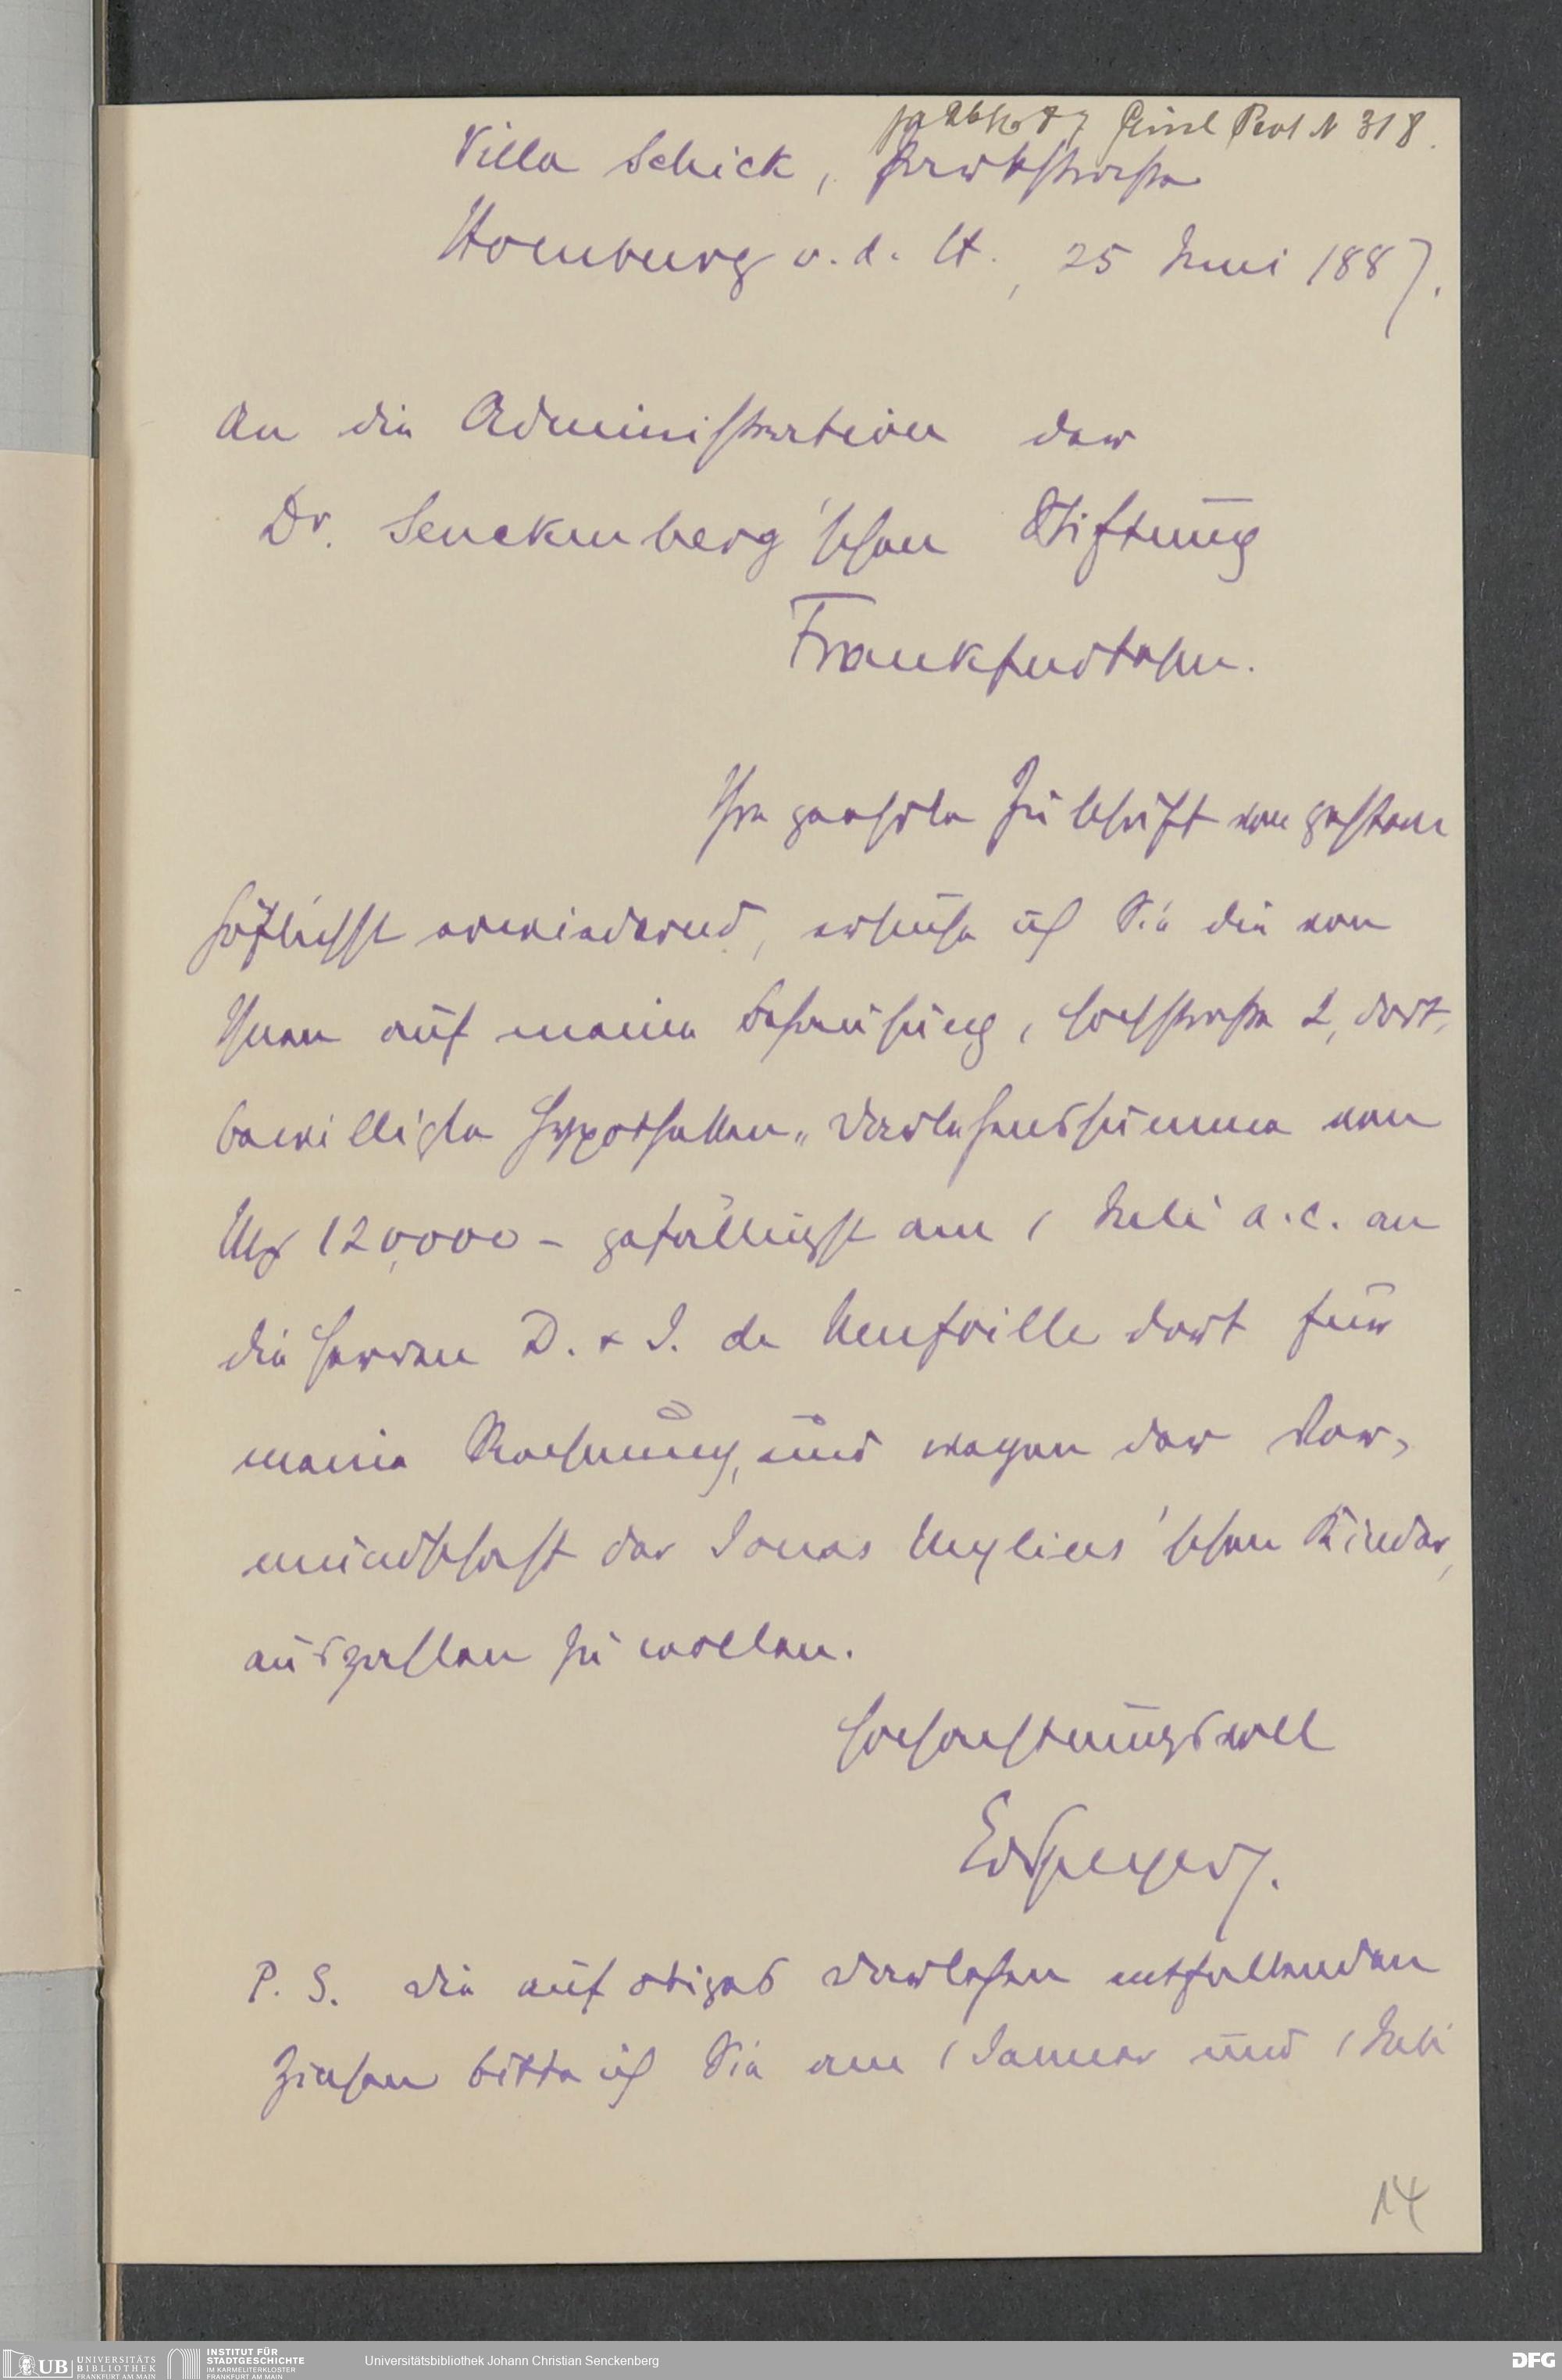 Einl Prot N 318.
Villa Schick, Parkstrasse
Homburg v. d. H., 25 Juni 1887.
An die Administration der
Dr. Senckenberg'schen Stiftung
Frankfurt a/M.
Ihre geehrte Zuschrift von gestern
höflichst erwiedernd, ersuche ich Sie die von
Ihnen auf meine Behausung, Hochstrasse 2, dort,
bewilligte Hypotheken-Darlehenssumme von
Mk 120,000 – gefälligst am 1 Juli a.c. an
die Herren D. & J. de Neufville dort für
meine Rechnung, und wegen der Vor-
mundschaft der Jonas Mylius'schen Kinder,
auszahlen zu wollen.
Hochachtungsvoll
Ed Speyer.
P. S. Die auf obiges Darlehen entfallenden
Zinsen bitte ich Sie am 1 Januar und 1 Juli
14
UB UNIVERSITÄTS
BIBLIOTHEK
FRANKFURT AM MAIN
INSTITUT FÜR
STADTGESCHICHTE
IM KARMELITERKLOSTER
FRANKFURT AM MAIN
Universitätsbibliothek Johann Christian Senckenberg
DFG